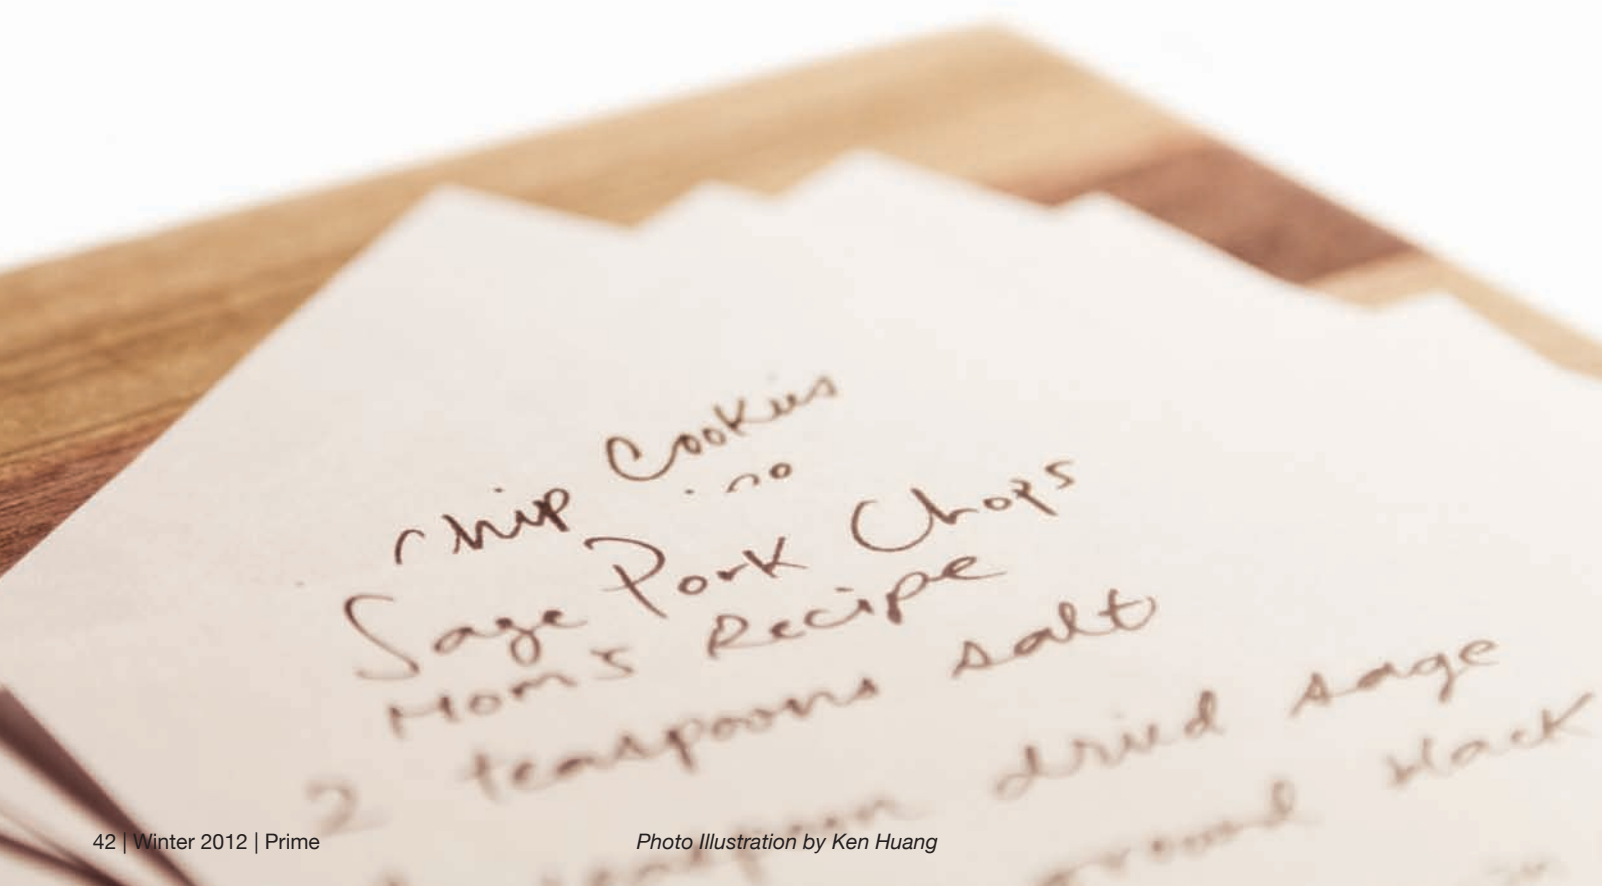 chip Cookies
Sage Pork Chops
Mom's Recipe
2 teaspoons salt
teaspoon dried sage
ground black
42 | Winter 2012 | Prime
Photo Illustration by Ken Huang